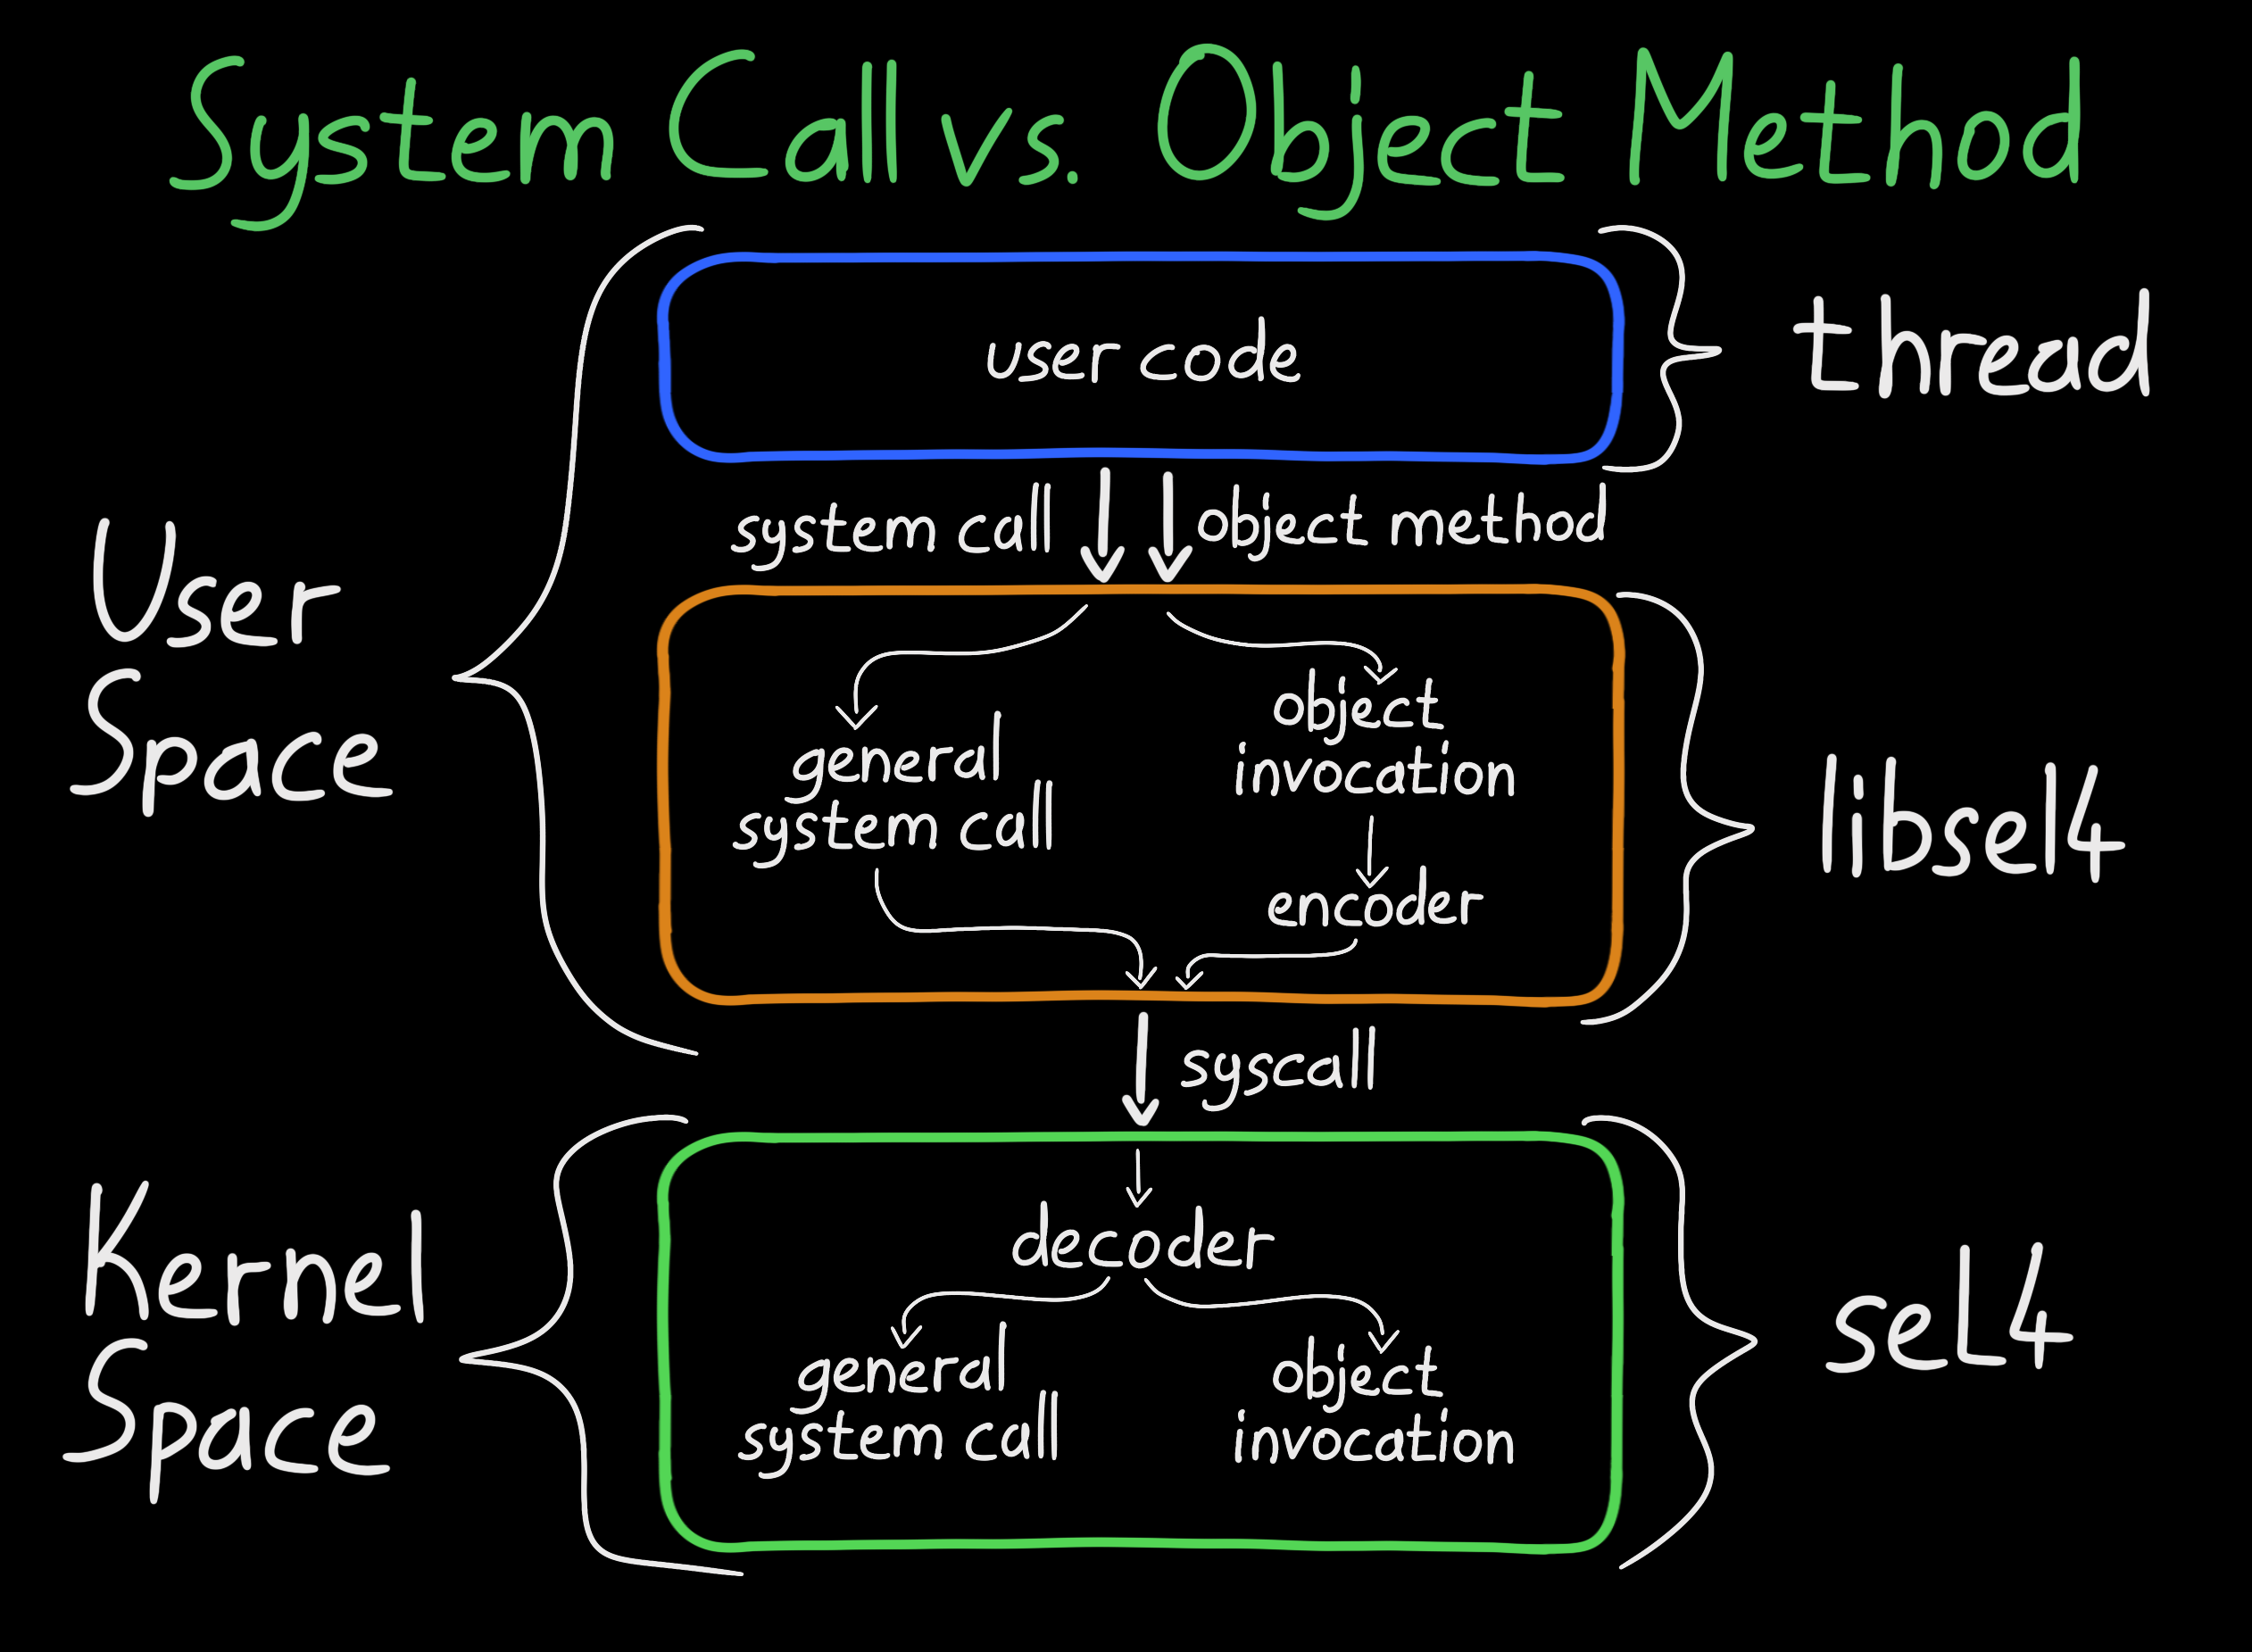 System Call vs. Object Method
user code
thread
system call
object method
User
Space
general
system call
object
invocation
encoder
libsel4
syscall
Kernel
Space
decoder
general
system call
object
invocation
seL4